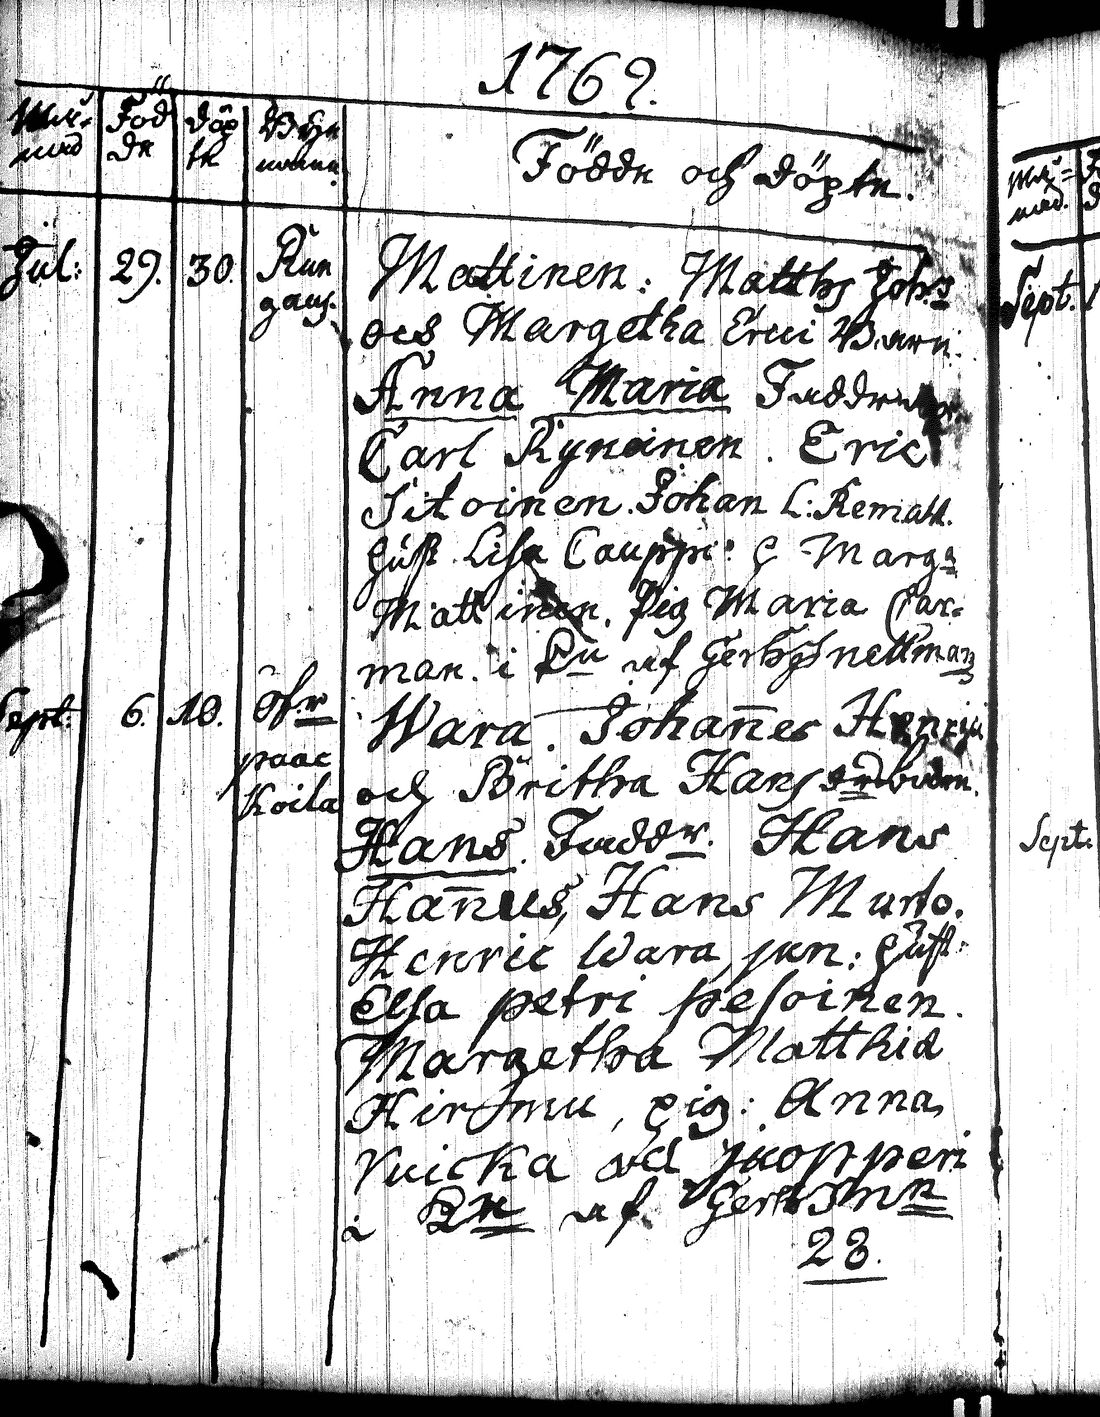 1769.
Må-
nad
Föd
de
döp
te
Byn
namn
Födde och döpte.
Jul: 29. 30. Kun
gaus.
Mattinen. Matths Johs
och Margetha Erici Barn.
Anna Maria Faddrar
Carl Kynäinen. Eric
Sitoinen. Johan L: Rematt.
Hust. Lisa Cauppi: Marga
Mattinen. Pig Maria Par-
man. i af
Sept: 6. 10. Öfr
paac
Koila
Wara. Johan̄es Henrici
och Britha Hans barn.
Hans. Faddr. Hans
Han̄us, Hans Murto.
Henric Wara jun: hust:
Elsa petri pesoinen.
Margetha Matthid
Hirfmu, pig: Anna
Vuicka od juopperi
i af
28.
Må-
nad.
Sept. 1
Sept: